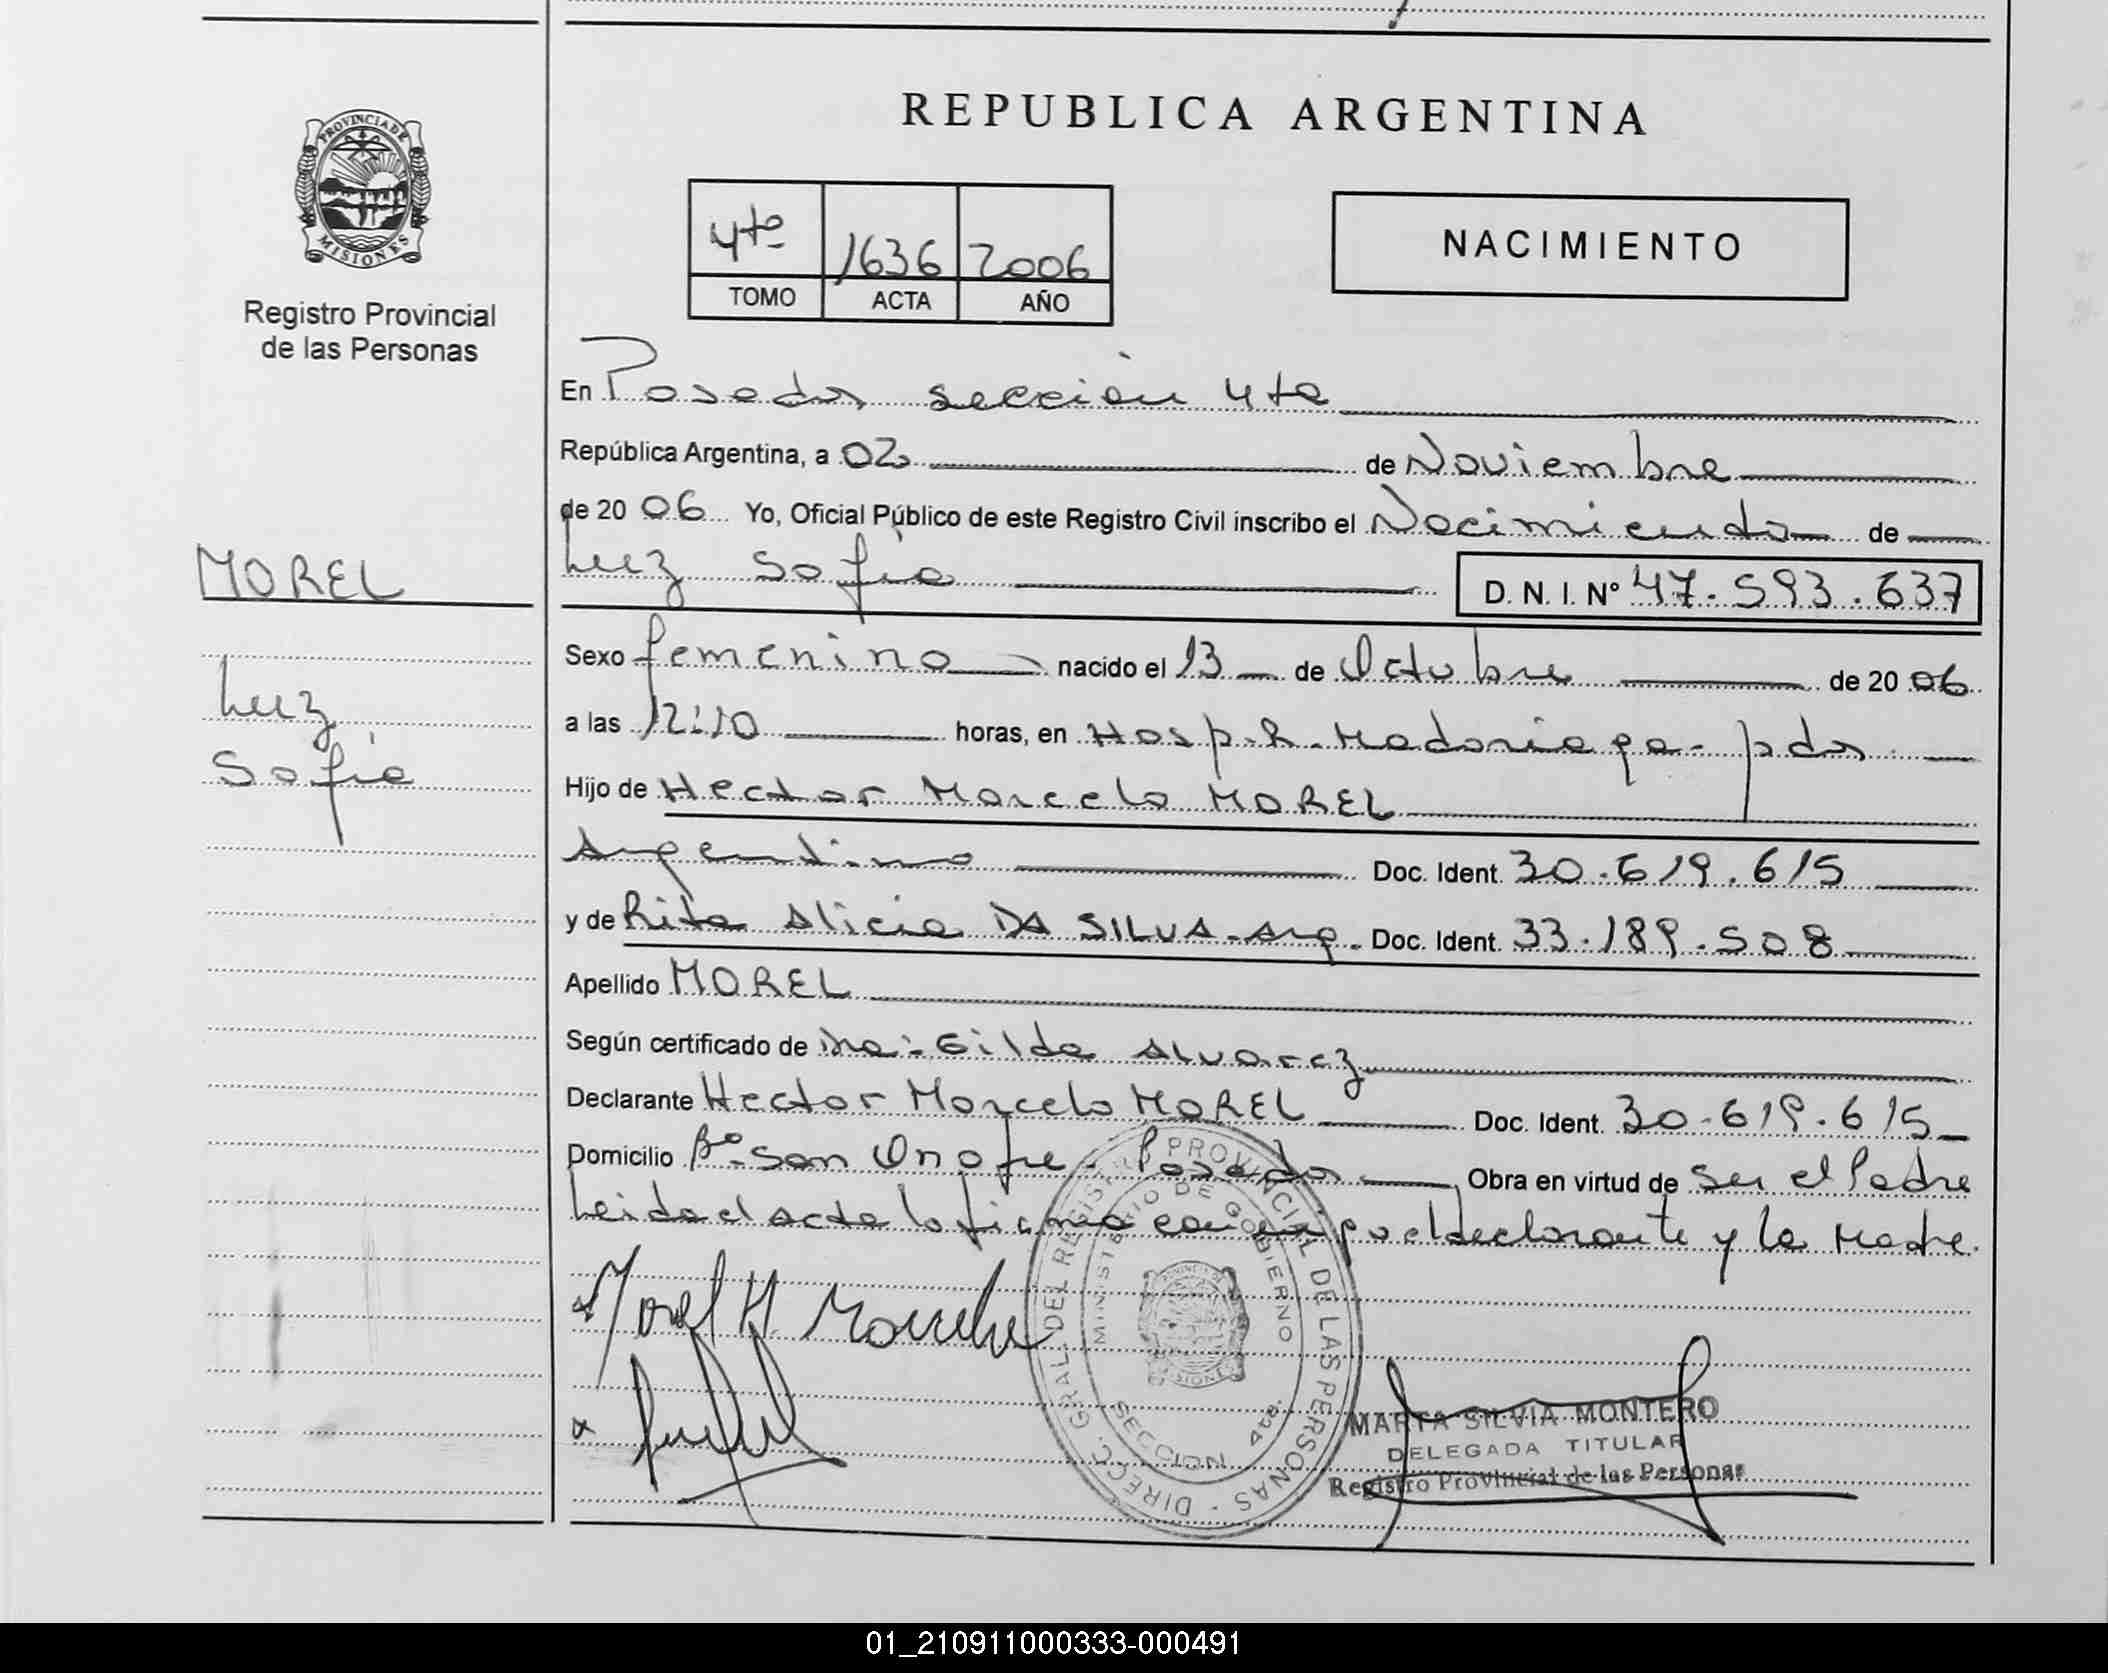 REPUBLICA ARGENTINA
PROVINCIA DE
MISIONES
Registro Provincial
de las Personas
4to 1636 2006
TOMO ACTA AÑO
NACIMIENTO
En Posadas sección 4ta
República Argentina, a 02 de Noviembre
de 20 06 Yo, Oficial Público de este Registro Civil inscribo el Nacimiento de
Luz Sofia
D. N. I. Nº 47.593.637
MOREL
Luz
Sofia
Sexo femenino nacido el 13 de Octubre de 20 06
a las 12:10 horas, en Hosp. R. Madariaga - pdas
Hijo de Hector Marcelo MOREL
Argentino Doc. Ident. 30.619.615
y de Rita Alicia DA SILVA - Arg. Doc. Ident. 33.189.508
Apellido MOREL
Según certificado de Dra: Gilda Alvarez
Declarante Hector Marcelo MOREL Doc. Ident. 30.619.615
Domicilio Bº San Onofre - Posadas Obra en virtud de ser el Padre
Leida el acta la firma conmigo el declarante y la Madre.
Morel H. Marcelo
DIRECC. GRAL. DEL REGISTRO PROVINCIAL DE LAS PERSONAS
MINISTERIO DE GOBIERNO
SECCION 4ta.
MARTA SILVIA MONTERO
DELEGADA TITULAR
Registro Provincial de las Personas
01_210911000333-000491